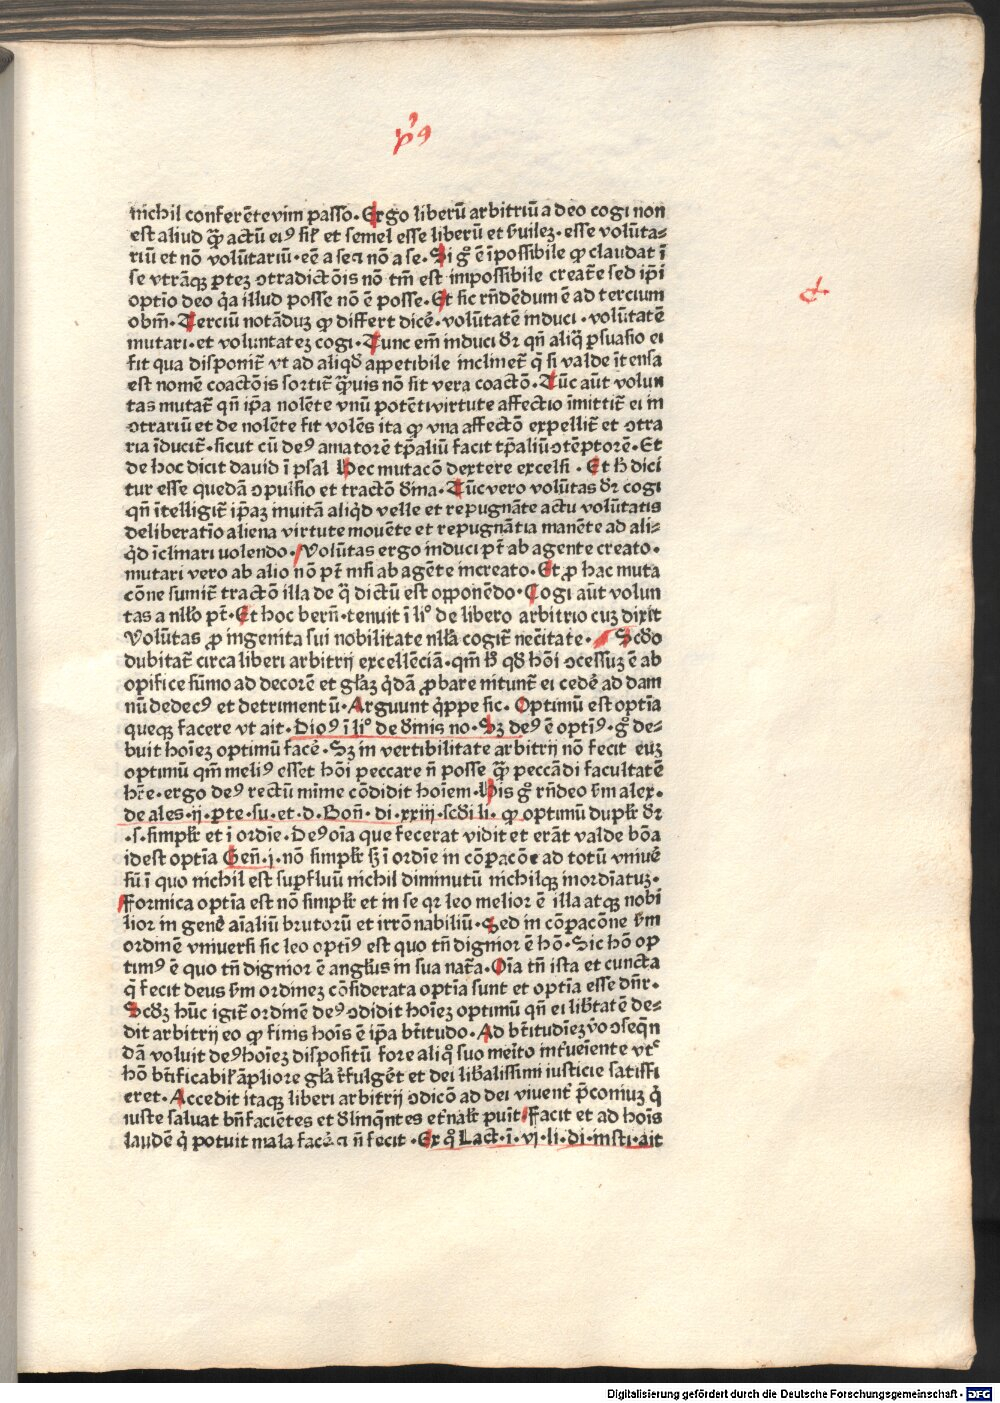 nichil conferēte vim passo. Ergo liberū arbitriū a deo cogi non
est aliud q̄ȝ actū eiꝰ fil̛ et semel esse liberū et ẜuileȝ. esse volūta⸗
riū et nō volūtariū. eē a se ⁊ nō a se. Si gͦ ē īpossibile ꝙ claudat ī
se vtrāqȝ ꝑteȝ ↄtradictōis nō tm̄ est impossibile creat̄e sed ip̄i
optīo deo q̇a illud posse nō ē posse. Et sic rn̄dēdum ē ad tercium
obm̄. Terciū notāduȝ ꝙ differt dicē. volūtatē induci. volūtatē
mutari. et voluntateȝ cogi. Tunc em̄ induci dr̄ qn̄ aliq̄ ꝑsuasio ei
fit qua disponit̄ vt ad aliqd̄ appetibile inclinet̄ q̄ si valde ītensa
est nomē coactōis sortit̄ q̄ȝuis nō sit vera coactō. Tūc aūt volun
tas mutat̄ qn̄ ip̄a nolēte vnū potēti virtute affectio īmittit̄ ei in
ↄtrariū et de nolēte fit volēs ita ꝙ vna affectō expellit̄ et ↄtra
ria īducit̄. sicut cū deꝰ amatorē tp̄aliū facit tp̄aliū ↄtēptorē. Et
de hoc dicit dauid ī psal Hec mutacō dextere excelsi. Et h̄ dici
tur esse quedā ↄpulsio et tractō d̄ina. Tūc vero volūtas dr̄ cogi
qn̄ ītelligit̄ ip̄aȝ inuitā aliq̇d velle et repugnāte actu volūtatis
deliberatīo aliena virtute mouēte et repugnātia manēte ad ali⸗
q̇d īclinari uolendo. Volūtas ergo induci pt̄ ab agente creato.
mutari vero ab alio nō pt̄ nisi ab agēte increato. Et ꝓ hac muta
cōne sumit̄ tractō illa de q̄ dictū est opponēdo. Cogi aūt volun
tas a nll̄o pt̄. Et hoc bern̄. tenuit ī liͦ de libero arbitrio cuȝ dixit
Volūtas ꝓ ingenita sui nobilitate nll̄a cogit̄ nec̄itate. Scd̄o
dubitat̄ circa liberi arbitrij excellēciā. qm̄ h̄ qd̄ hōi ↄcessuȝ ē ab
opifice sūmo ad decorē et gl̄aȝ q̇dā ꝓbare nitunt̄ ei cedē ad dam
nū dedecꝰ et detrimentū. Arguunt q̇ppe sic. Optimū est optīa
queqȝ facere vt ait. Dioꝰ ī liͦ de d̄inis no. Sȝ deꝰ ē optīꝰ. gͦ de⸗
buit hoīeȝ optimū facē. Sȝ in vertibilitate arbitrij nō fecit euȝ
optimū qm̄ meliꝰ esset hōi peccare n̄ posse q̄ȝ peccādi facultatē
hr̄e. ergo deꝰ rectū mīme cōdidit hoīem. His gͦ rn̄deo ẜm alex.
de ales. ij. ꝑte. su. et. d. Bon̄. di. xxiij. scd̄i li. ꝙ optimū dupl̄r dr̄
.s. simpl̄r et ī ordīe. Deꝰ oīa que fecerat vidit et erāt valde bōa
idest optīa Gen̄. j. nō simpl̄r sȝ ī ordīe in cōꝑacōe ad totū vniuē
sū ī quo nichil est suꝑfluū nichil diminutū nichilqȝ inordīatuȝ.
Formica optīa est nō simpl̄r et in se qr leo melior ē illa atqȝ nobi
lior in genē aīaliū brutorū et irrōnabiliū. Sed in cōꝑacōne ẜm
ordinē vniuersi sic leo optīꝰ est quo tn̄ dignior ē hō. Sic hō op
timꝰ ē quo tn̄ dignior ē angl̄us in sua nat̄a. Oīa tn̄ ista et cuncta
q̄ fecit deus ẜm ordineȝ cōsiderata optīa sunt et optīa esse dn̄r.
Scd̄ȝ hūc igit̄ ordinē deꝰ ↄdidit hoīeȝ optimū qn̄ ei lib̄tatē de⸗
dit arbitrij eo ꝙ finis hoīs ē ip̄a bt̄itudo. Ad bt̄itudīeȝ v̄o ↄseqn̄
dā voluit deꝰ hoīeȝ dispositū fore aliqͦ suo meīto int̄ueīente vtͨ
hō bt̄ificabil̛ āpliore gl̄a t̄fulgēt et dei lib̄alissimi iusticie satisfi
eret. Accedit itaqȝ liberi arbitrij ↄdicō ad dei viuent̄ p̄coniuȝ q̇
iuste saluat bn̄faciētes et d̄linq̄ntes et̄nal̄r puīt. Facit et ad hoīs
laudē q̇ potuit mala facē ⁊ n̄ fecit. Ex qͦ Lact. ī. vj. li. di. insti. ait